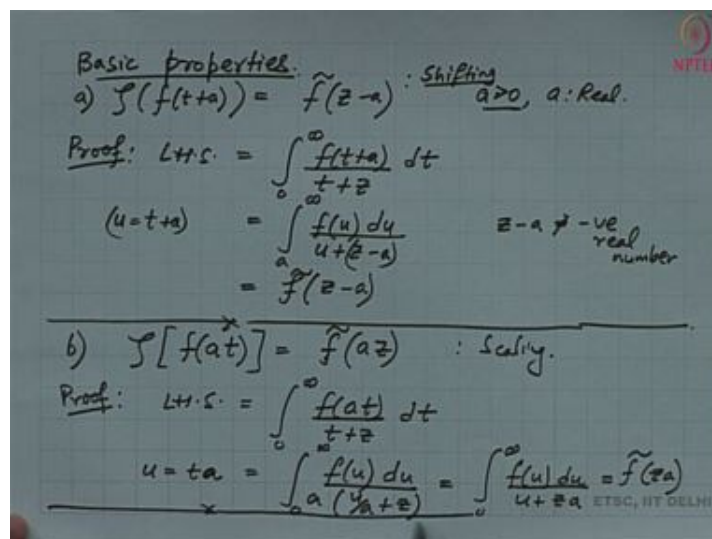 NPTEL
Basic properties.
a) ζ(f(t+a)) = f̃(z-a) : Shifting
a≥0, a: Real.
Proof: L.H.S. = ∫₀^∞ f(t+a)/(t+z) dt
(u=t+a) = ∫ₐ^∞ f(u) du/(u+(z-a))
z-a ≠ -ve
real
number
= f̃(z-a)
b) ζ[f(at)] = f̃(az) : Scaling.
Proof: L.H.S. = ∫₀^∞ f(at)/(t+z) dt
u = ta = ∫₀^∞ f(u) du/(a(u/a+z)) = ∫₀^∞ f(u) du/(u+za) = f̃(za)
ETSC, IIT DELHI